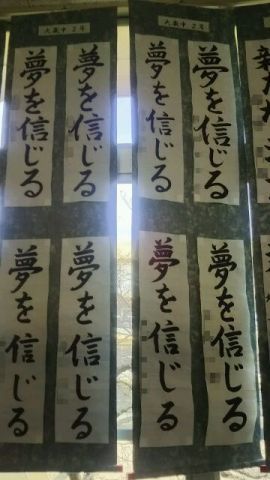 夢を信じる
夢を信じる
夢を信じる
夢を信じる
夢を信じる
夢を信じる
夢を信じる
夢を信じる